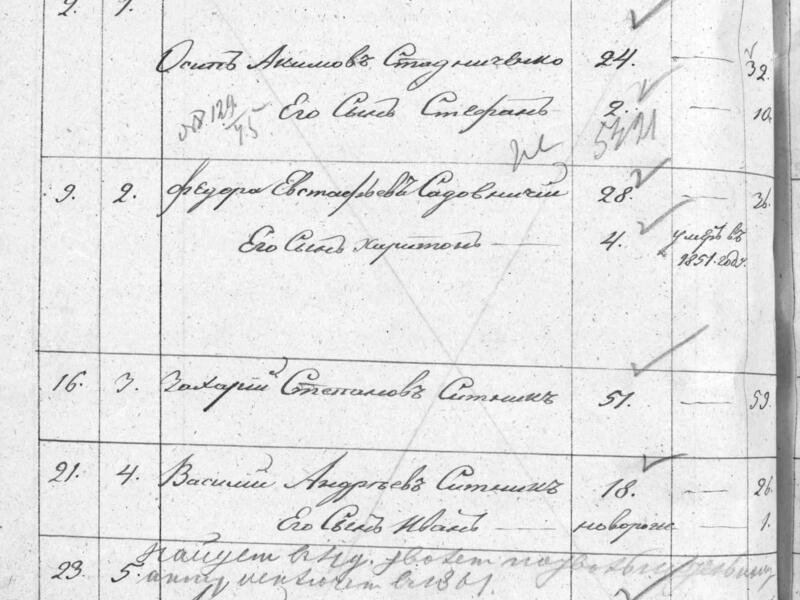 Осипъ Акимовъ Стадниченко 24. — 32.
Его Сынъ Стефанъ 2. — 10.
9. 2. Ѳедоръ Евстафьевъ Садовничій 28. — 36.
Его Сынъ Харитонъ — 4. умеръ въ
1851. году.
16. 3. Захарій Степановъ Ситникъ 51. — 59.
21. 4. Василій Андрѣевъ Ситникъ 18. — 26.
Его Сынъ Иванъ — новорож — 1.
23. 5.